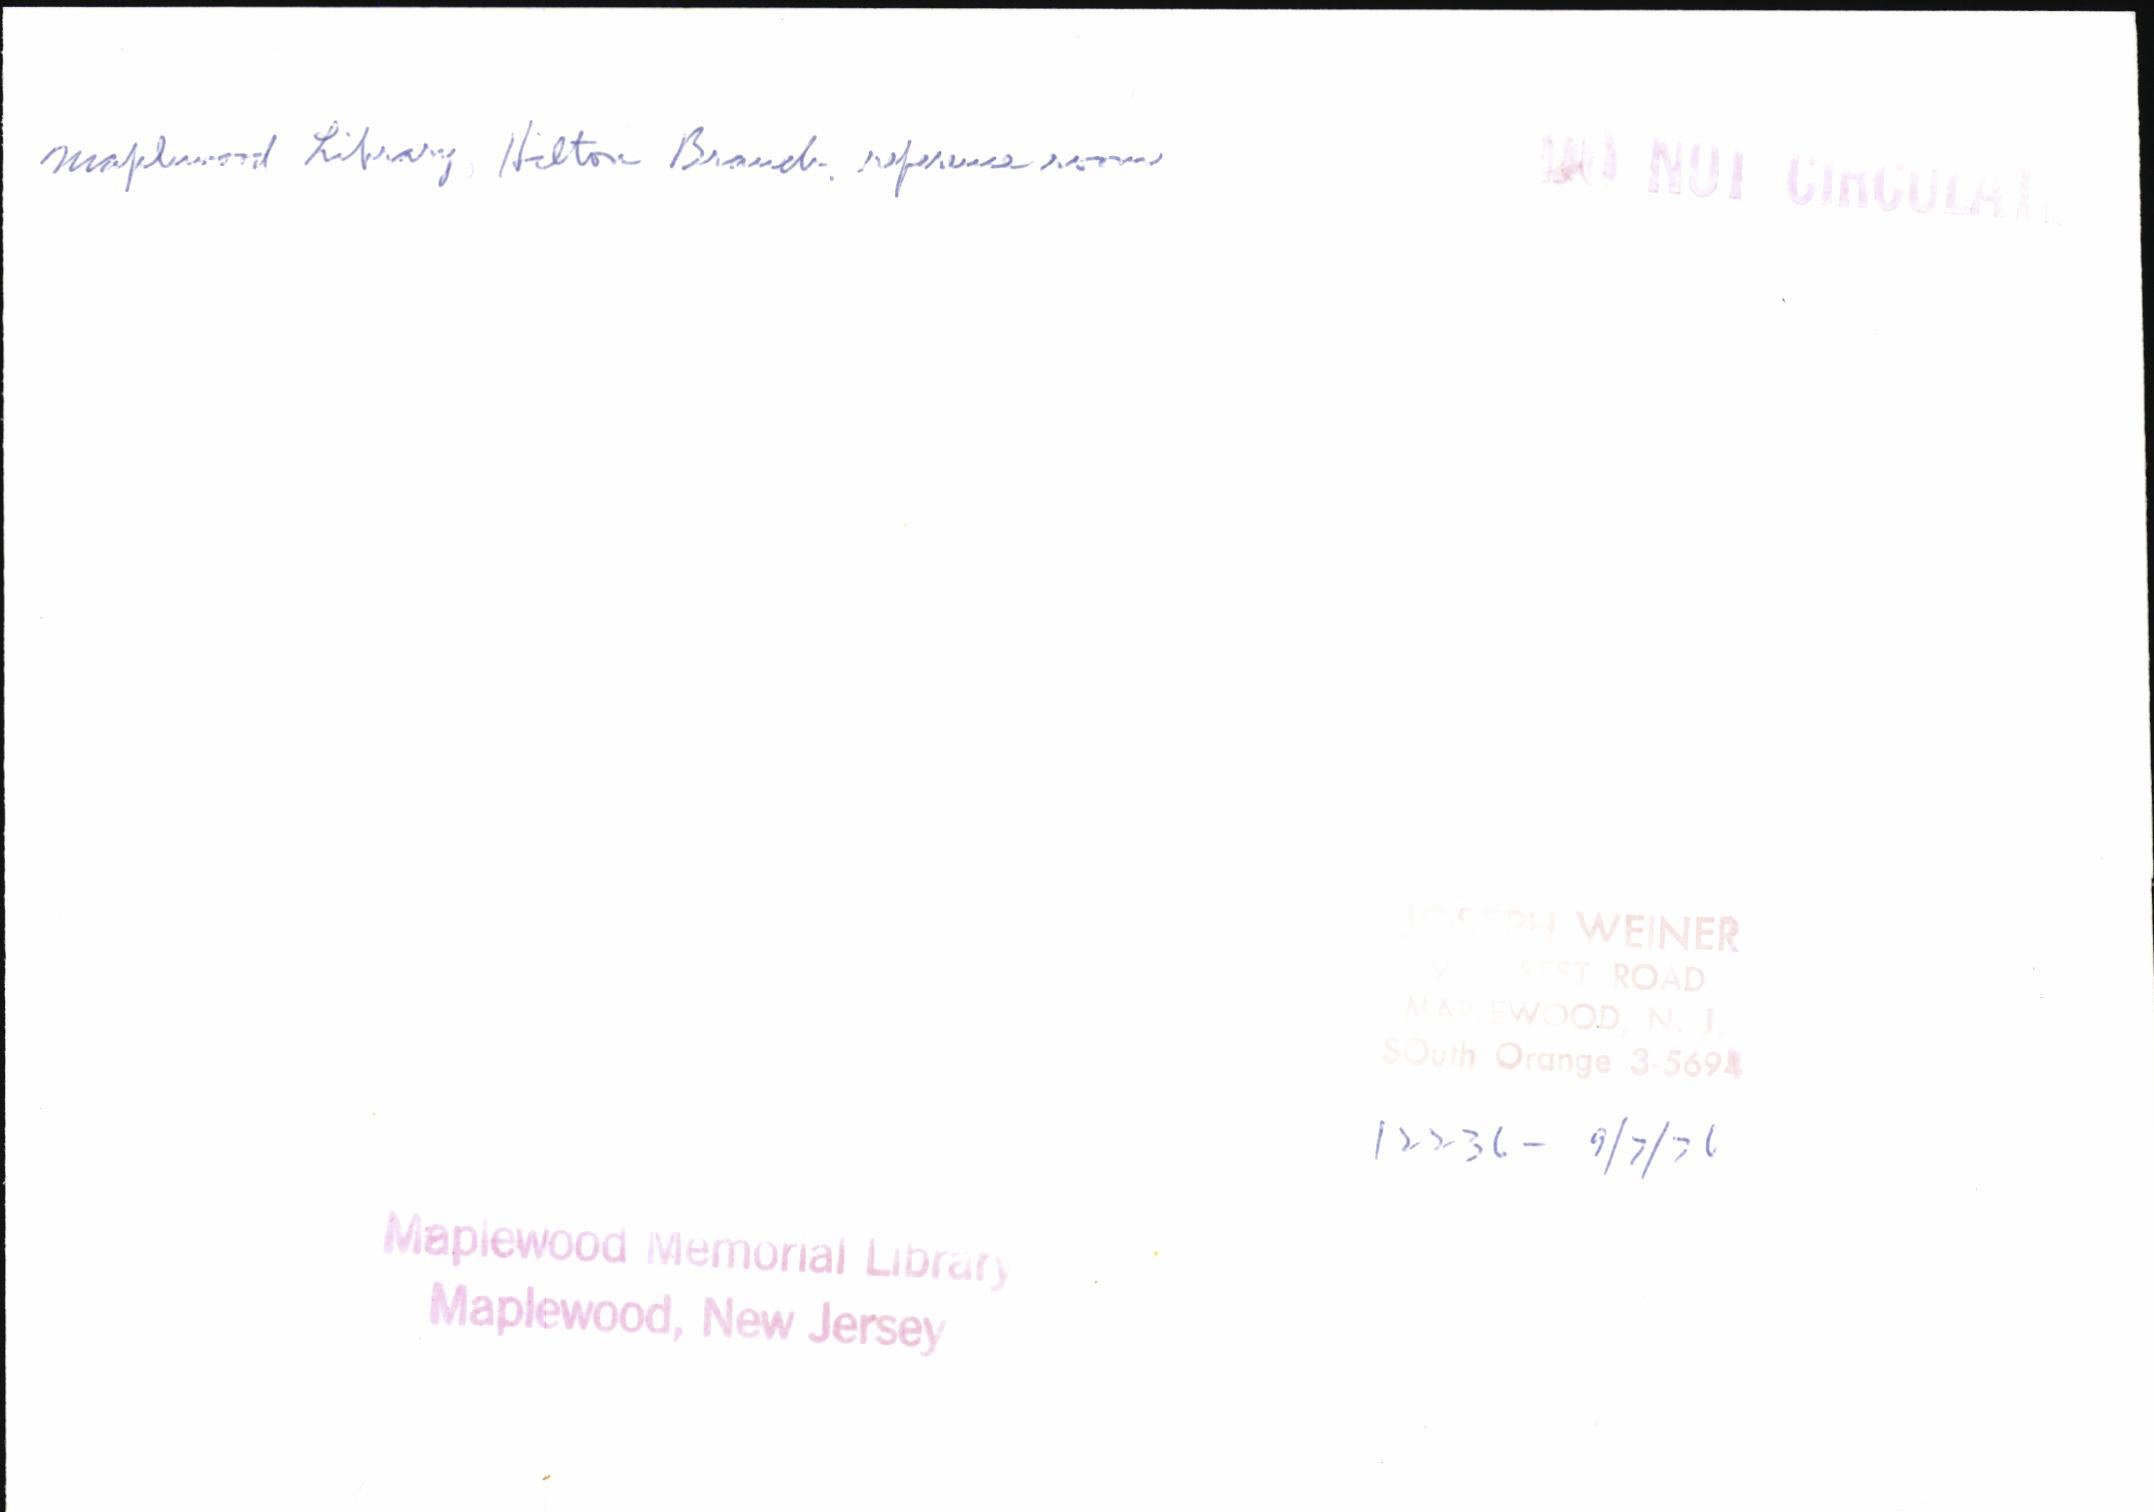 Maplewood Library, Hilton Branch, reference room
NOT CIRCULATE
JOSEPH WEINER
ROAD
MAPLEWOOD, N. J.
SOuth Orange 3-5694
12236 - 9/7/76
Maplewood Memorial Library
Maplewood, New Jersey